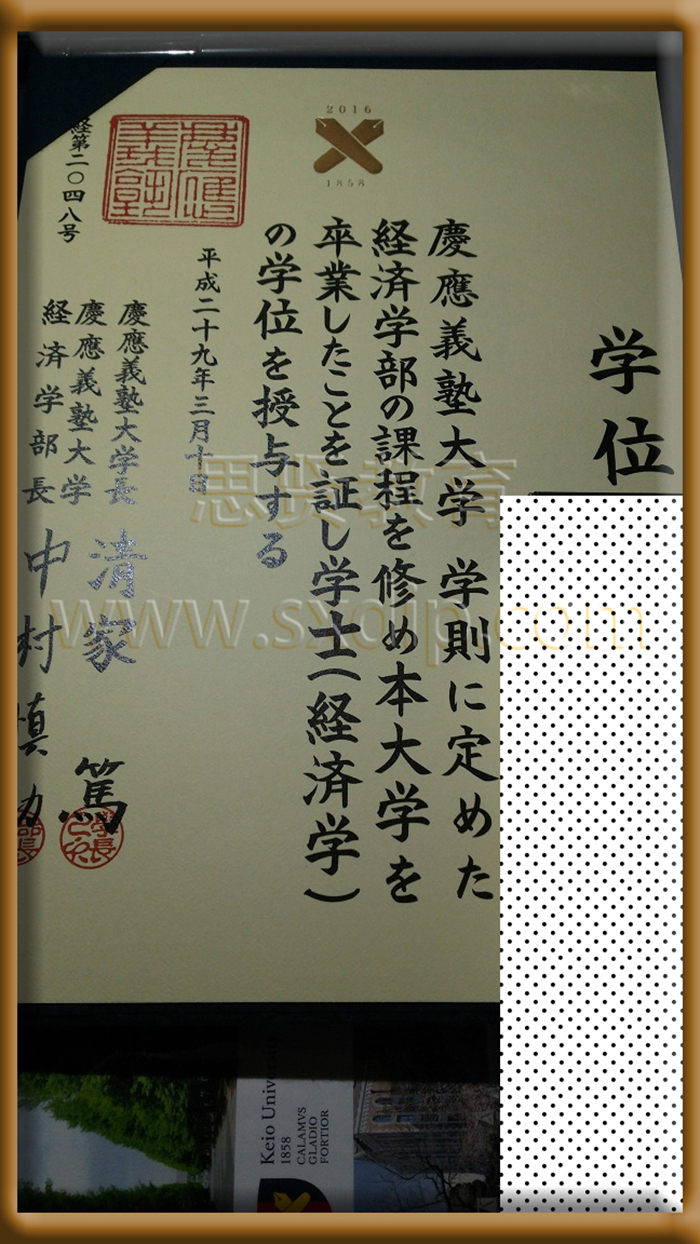 学位
慶應義塾大学 学則に定めた
経済学部の課程を修め本大学を
卒業したことを証し学士(経済学)
の学位を授与する
2016
1858
平成二十九年三月十日
慶應義塾大学長 清家 篤
慶應義塾大学
経済学部長 中村慎助
慶應義塾
経第二〇四八号
思贤教育
Keio Univer
1858
CALAMVS
GLADIO
FORTIOR